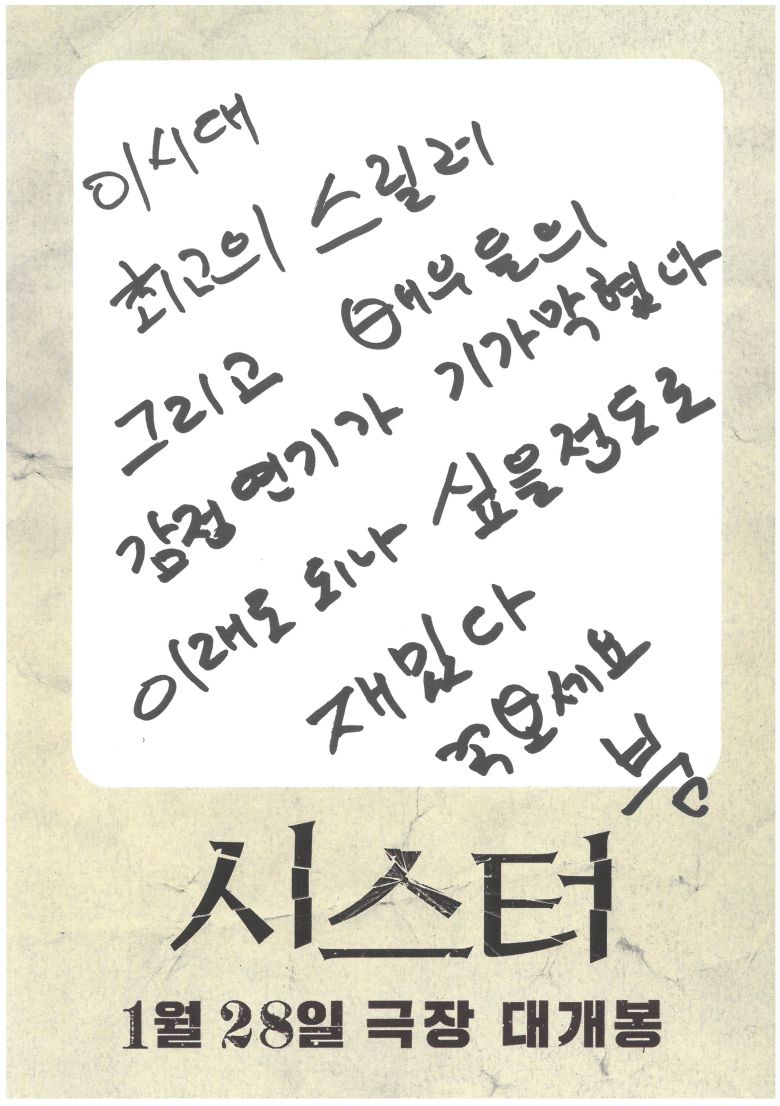 이시대
최고의 스릴러
그리고 배우들의
감정 연기가 기가막혔다
이래도 되나 싶을정도로
재밌다
꼭보세요
시스터
1월 28일 극장 대개봉